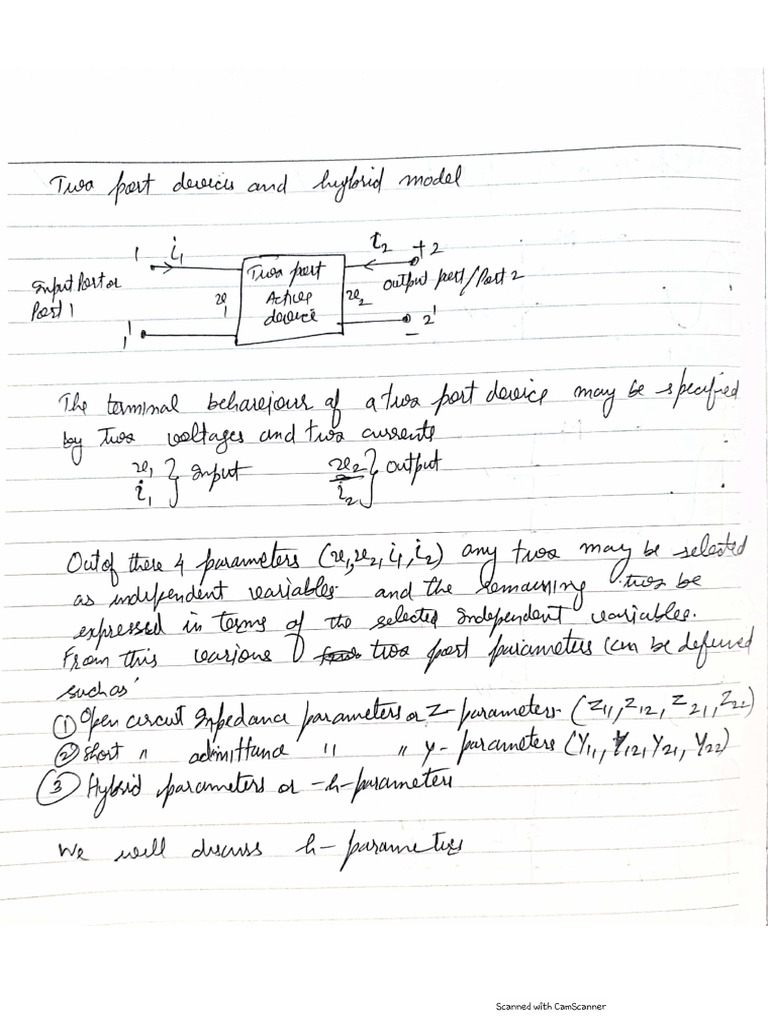 Two port devices and hybrid model
1 i1 i2 + 2
Input Port or Port 1
v1
Two port Active device
v2
Output port / Port 2
1' 2'
−
The terminal behaviour of a two port device may be specified
by two voltages and two currents
v1 } Input v2 } Output
i1 i2
Out of these 4 parameters (v1, v2, i1, i2) any two may be selected
as independent variables and the remaining two be
expressed in terms of the selected Independent variables.
From this various two port parameters can be defined
such as'
① Open circuit Impedance parameters or Z-parameters (Z11, Z12, Z21, Z22)
② Short " admittance " " y-parameters (Y11, Y12, Y21, Y22)
③ Hybrid parameters or -h-parameters
We will discuss h-parameters
Scanned with CamScanner